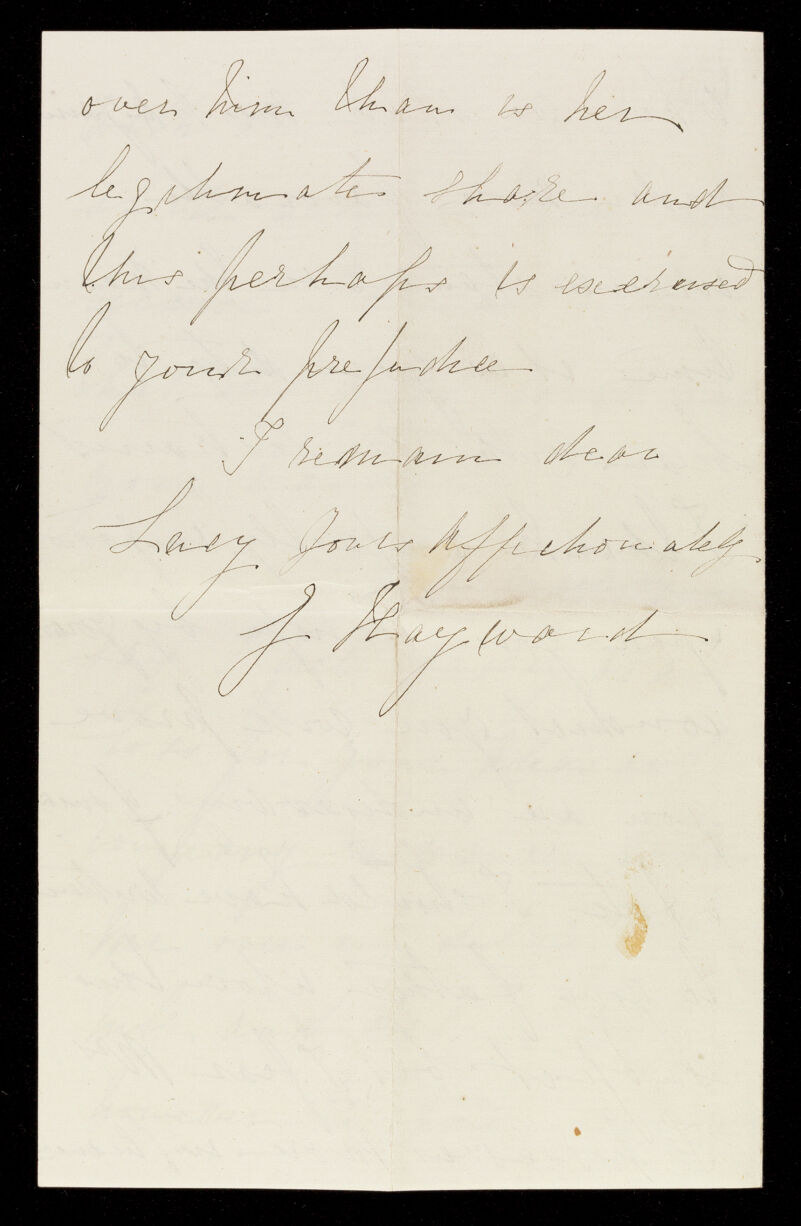 over him than is her
legitimate share and
this perhaps is exercised
to your prejudice
I remain dear
Lucy yours affectionately
J Hayward